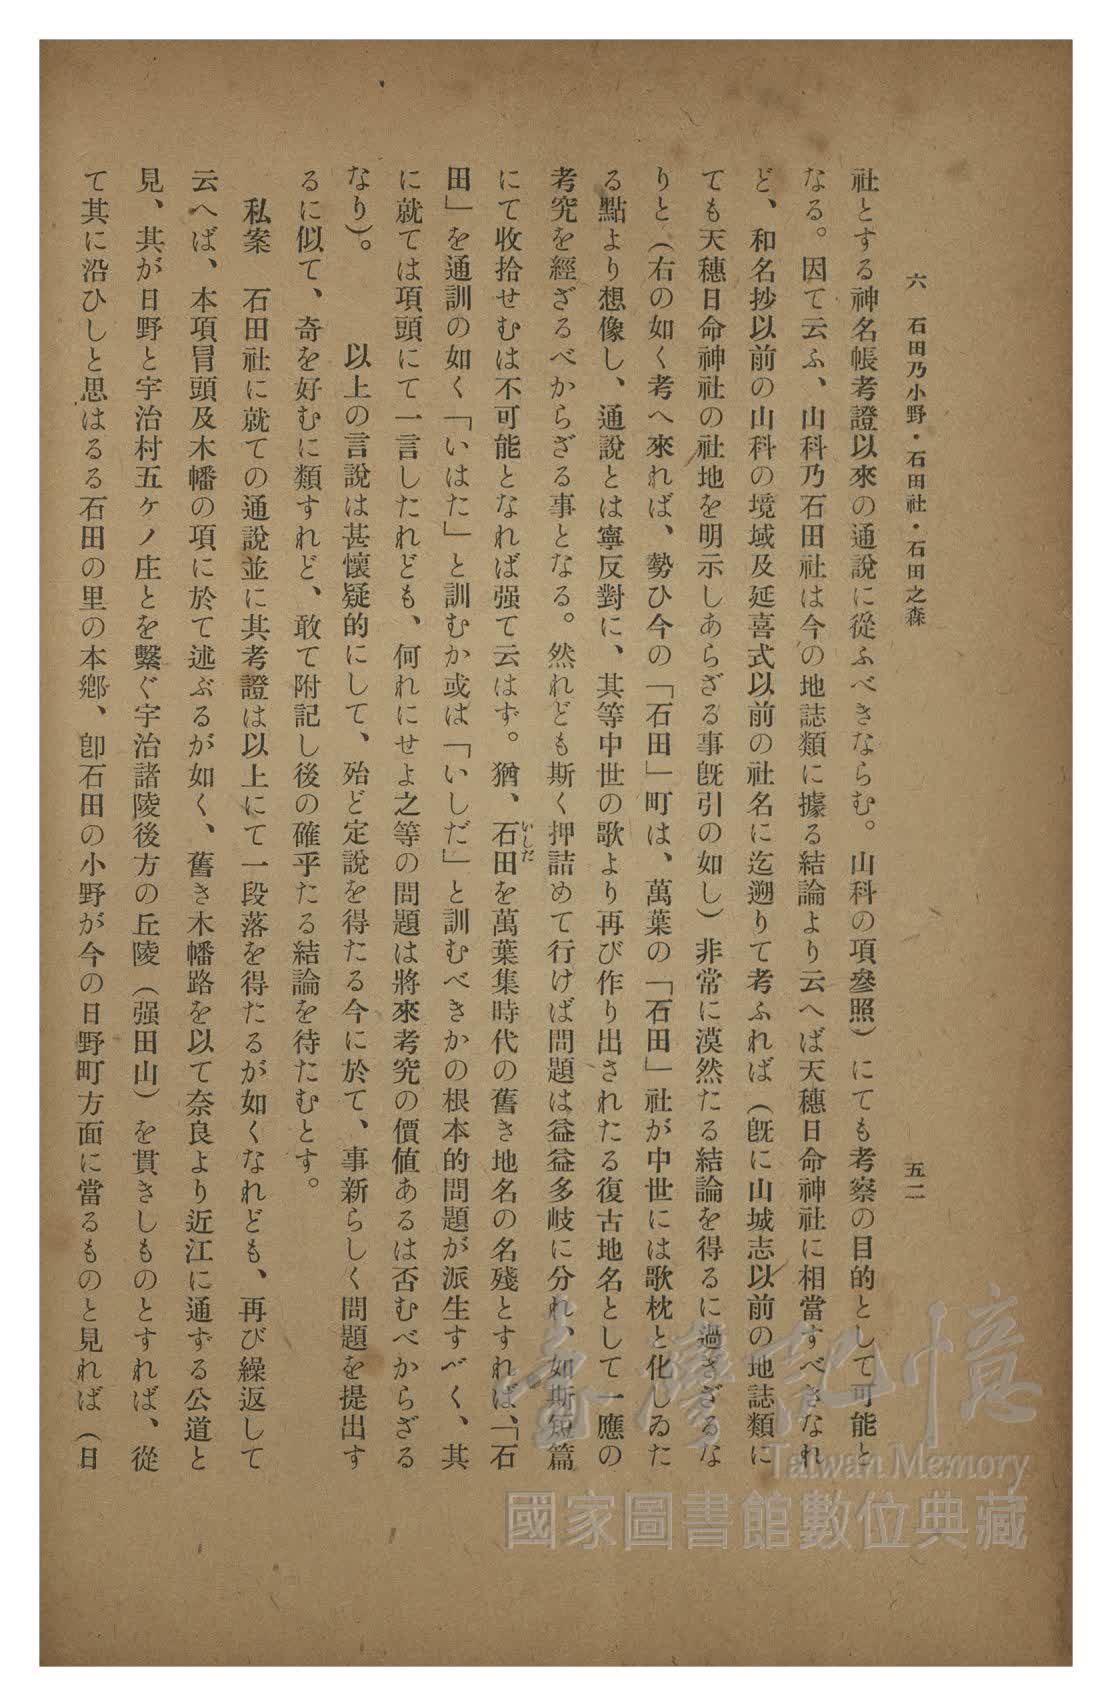 六　石田乃小野・石田社・石田之森
五二
社とする神名帳考證以來の通說に從ふべきならむ。山科の項參照）にても考察の目的として可能と
なる。因て云ふ、山科乃石田社は今の地誌類に據る結論より云へば天穗日命神社に相當すべきなれ
ど、和名抄以前の山科の境域及延喜式以前の社名に迄遡りて考ふれば（旣に山城志以前の地誌類に
ても天穗日命神社の社地を明示しあらざる事旣引の如し）非常に漠然たる結論を得るに過ぎざるな
りと（右の如く考へ來れば、勢ひ今の「石田」町は、萬葉の「石田」社が中世には歌枕と化しゐた
る點より想像し、通說とは寧反對に、其等中世の歌より再び作り出されたる復古地名として一應の
考究を經ざるべからざる事となる。然れども斯く押詰めて行けば問題は益益多岐に分れ、如斯短篇
にて收拾せむは不可能となれば强て云はず。猶、石田いしだを萬葉集時代の舊き地名の名殘とすれば、「石
田」を通訓の如く「いはた」と訓むか或は「いしだ」と訓むべきかの根本的問題が派生すべく、其
に就ては項頭にて一言したれども、何れにせよ之等の問題は將來考究の價値あるは否むべからざる
なり）。　以上の言說は甚懷疑的にして、殆ど定說を得たる今に於て、事新らしく問題を提出す
るに似て、奇を好むに類すれど、敢て附記し後の確乎たる結論を待たむとす。
私案　石田社に就ての通說並に其考證は以上にて一段落を得たるが如くなれども、再び繰返して
云へば、本項冒頭及木幡の項に於て述ぶるが如く、舊き木幡路を以て奈良より近江に通ずる公道と
見、其が日野と宇治村五ケノ庄とを繫ぐ宇治諸陵後方の丘陵（强田山）を貫きしものとすれば、從
て其に沿ひしと思はるる石田の里の本鄕、卽石田の小野が今の日野町方面に當るものと見れば（日
臺灣記憶
Taiwan Memory
國家圖書館數位典藏